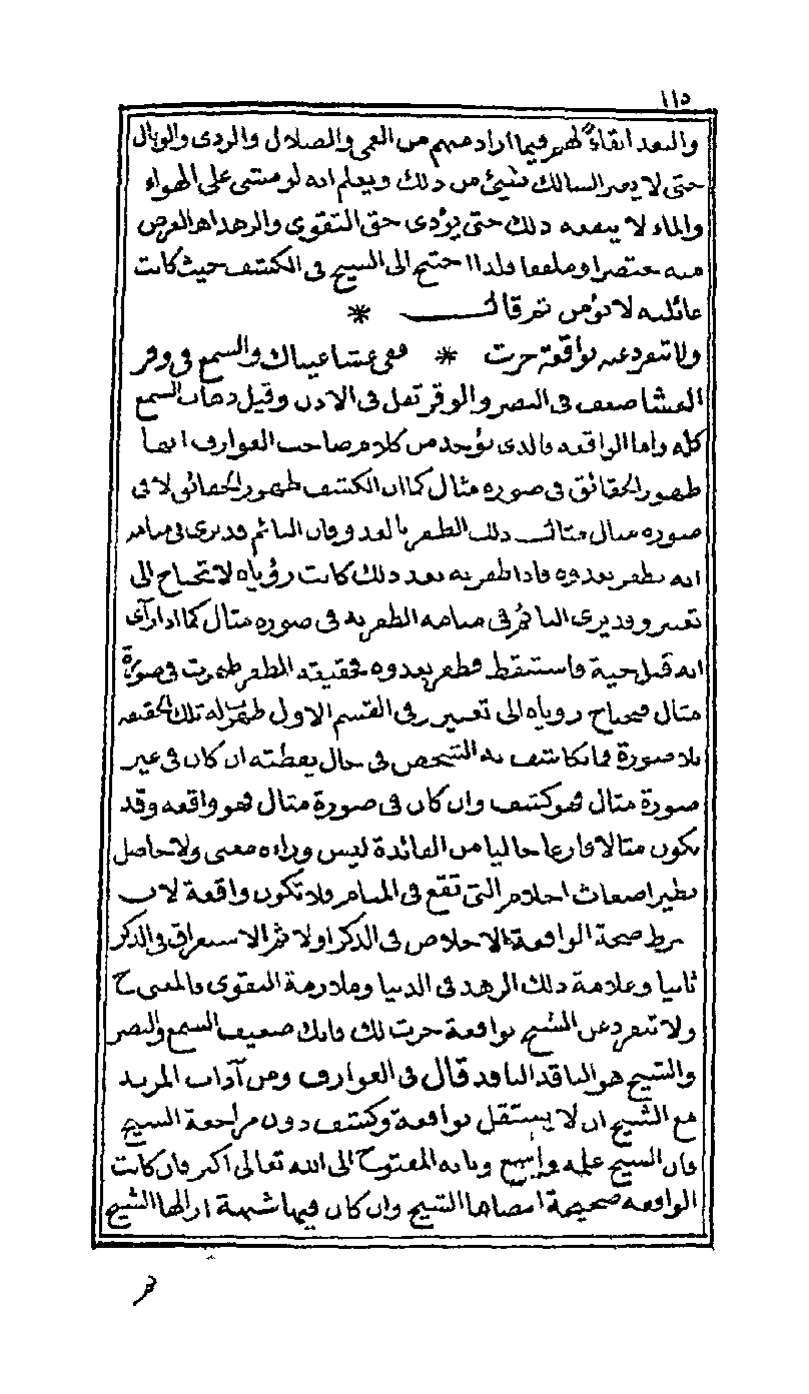 ١١٥
والبعد ابقاءً لهم فيما اراد منهم من العمى والضلال والردى والوبال
حتى لا يغتر السالك بشيئ من ذلك ويعلم انه لو مشى على الهواء
والماء لا ينفعه ذلك حتى يؤدى حق التقوى والزهد اهـ الغرض
منه مختصرا وملفقا فلذا احتيج الى الشيخ فى الكشف حيث كانت
غائلته لا تؤمن ثم قال
ولا تنفرد عنه بواقعة جرت * ففى غشا عيناك والسمع فى وقر
الغشا ضعف فى البصر والوقر ثقل فى الاذن وقيل ذهاب السمع
كله واما الواقعه فالذى يؤخذ من كلام صاحب العوارف انها
ظهور الحقائق فى صوره مثال كما ان الكشف ظهور الحقائق لا فى
صوره مثال مثال ذلك الظفر بالعدو فان النائم قد يرى فى منامه
انه يظفر بعدوه فاذا ظفر به بعد ذلك كانت رؤياه لا تحتاج الى
تعبير وقد يرى النائم فى منامه الظفر به فى صوره مثال كما اذا رأى
انه قتل حية فاستيقظ فظفر بعدوه فحقيقته الظفر ظهرت فى صورة
مثال فتحتاج روياه الى تعبير وفى القسم الاول ظهرت له تلك الحقيقه
بلا صورة فما يكاشف به الشخص فى حال يقظته ان كان فى غير
صورة مثال فهو كشف وان كان فى صورة مثال فهو واقعه وقد
يكون مثالا فارغا خاليا من الفائدة ليس وراءه معنى ولا حاصل
نظير اضغاث احلام التى تقع فى المنام فلا تكون واقعة لان
شرط صحة الواقعة الاخلاص فى الذكر اولا ثم الاستغراق فى الذكر
ثانيا وعلامة ذلك الزهد فى الدنيا وملازمة التقوى فالمعنى ح
ولا تنفرد عن الشيخ بواقعة جرت لك فانك ضعيف السمع والبصر
والشيخ هو الناقد النافد قال فى العوارف ومن آداب المريد
مع الشيخ ان لا يستقل بواقعة وكشف دون مراجعة الشيخ
فان الشيخ علمه واسع وبابه المفتوح الى الله تعالى اكبر فان كانت
الواقعه صحيحة امضاها الشيخ وان كان فيها شبهة ازالها الشيخ